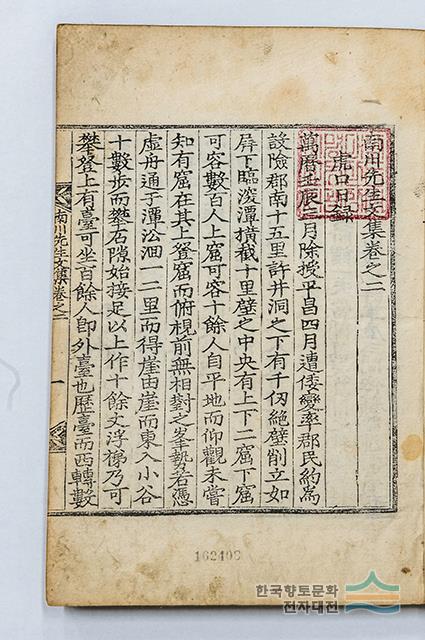 南川先生文集卷之二
虎口日錄
萬曆壬辰二月除授平昌四月遭倭變率郡民約爲
設險郡南十五里許井洞之下有千仞絶壁削立如
屛下臨深潭橫截十里壁之中央有上下二窟下窟
可容數百人上窟可容十餘人自平地而仰觀未嘗
知有窟在其上登窟而俯視前無相對之峯勢若憑
虛舟通子潭沿洄一二里而得崖由崖而東入小谷
十數步而攀石隙始接足以上作十餘丈浮梯乃可
攀登上有臺可坐百餘人卽外臺也歷臺而西轉數
南川先生文集卷之二
一
162409
한국향토문화
전자대전